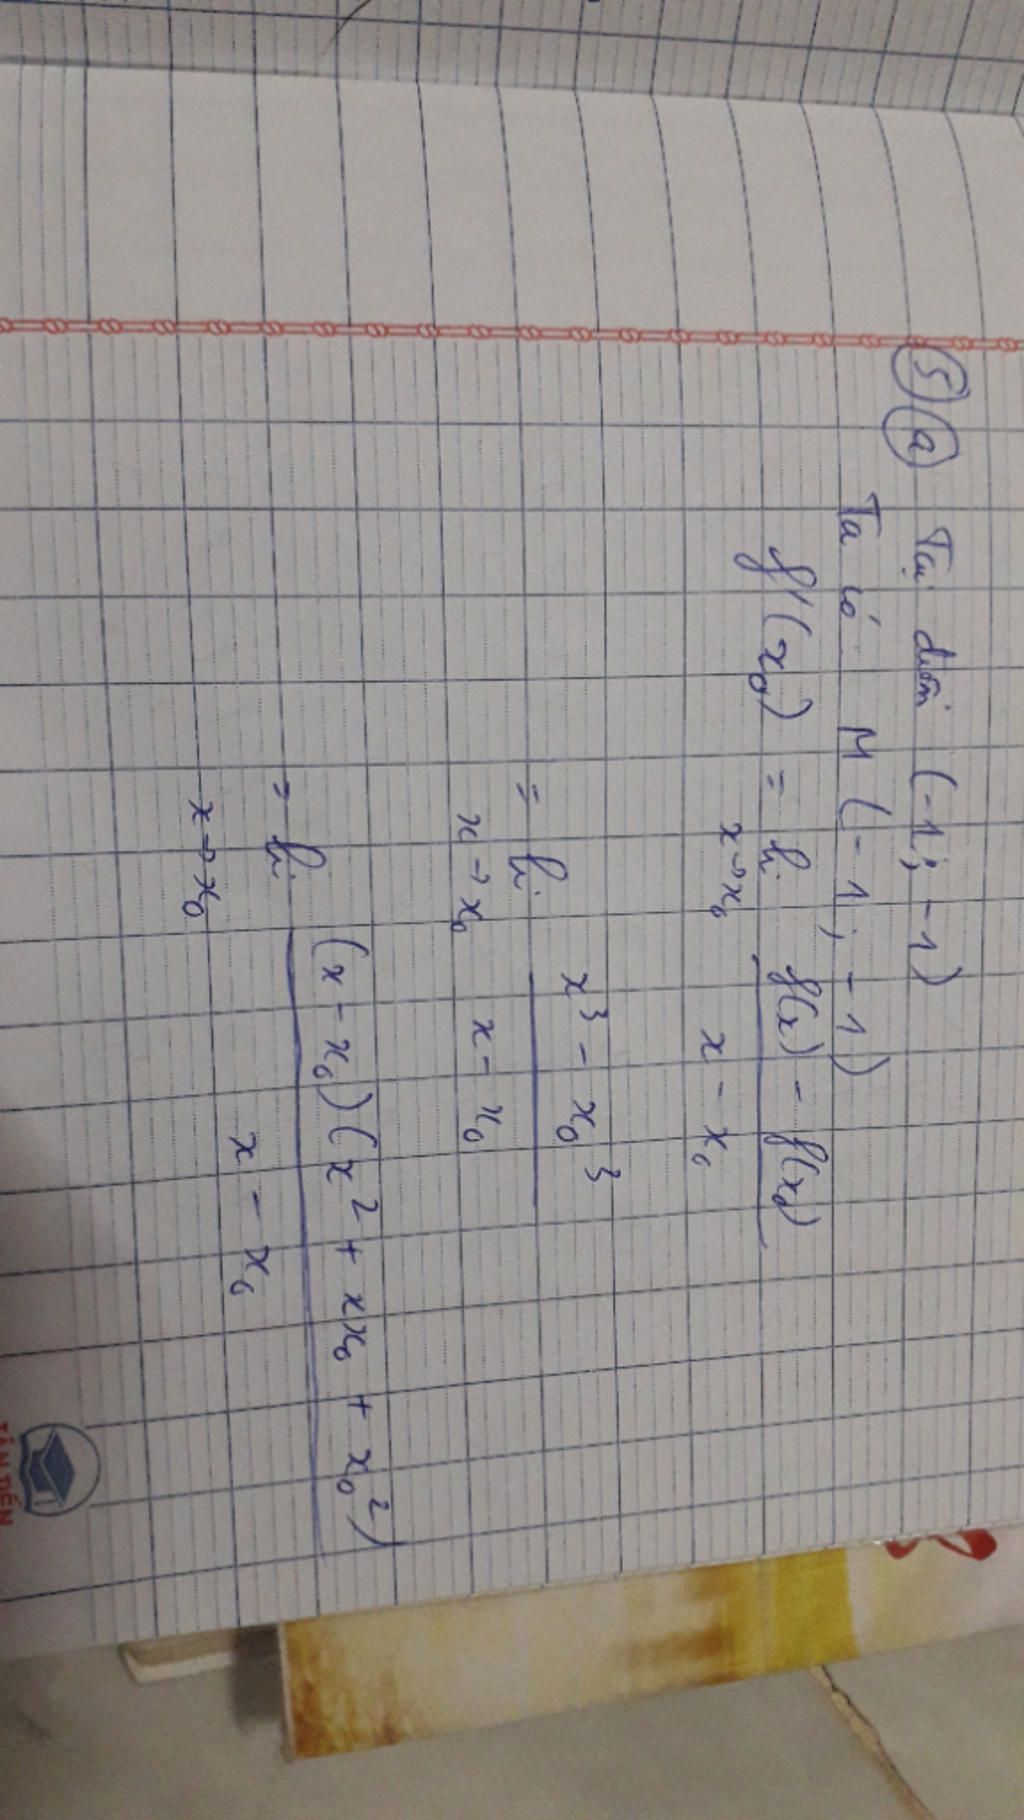 5 a Tại điểm (-1; -1)
Ta có M (-1; -1)
f'(x₀) = li f(x) - f(x₀)
x→x₀ x - x₀
= li x³ - x₀³
x→x₀ x - x₀
= li (x - x₀)(x² + xx₀ + x₀²)
x→x₀ x - x₀
TÂN TIẾN